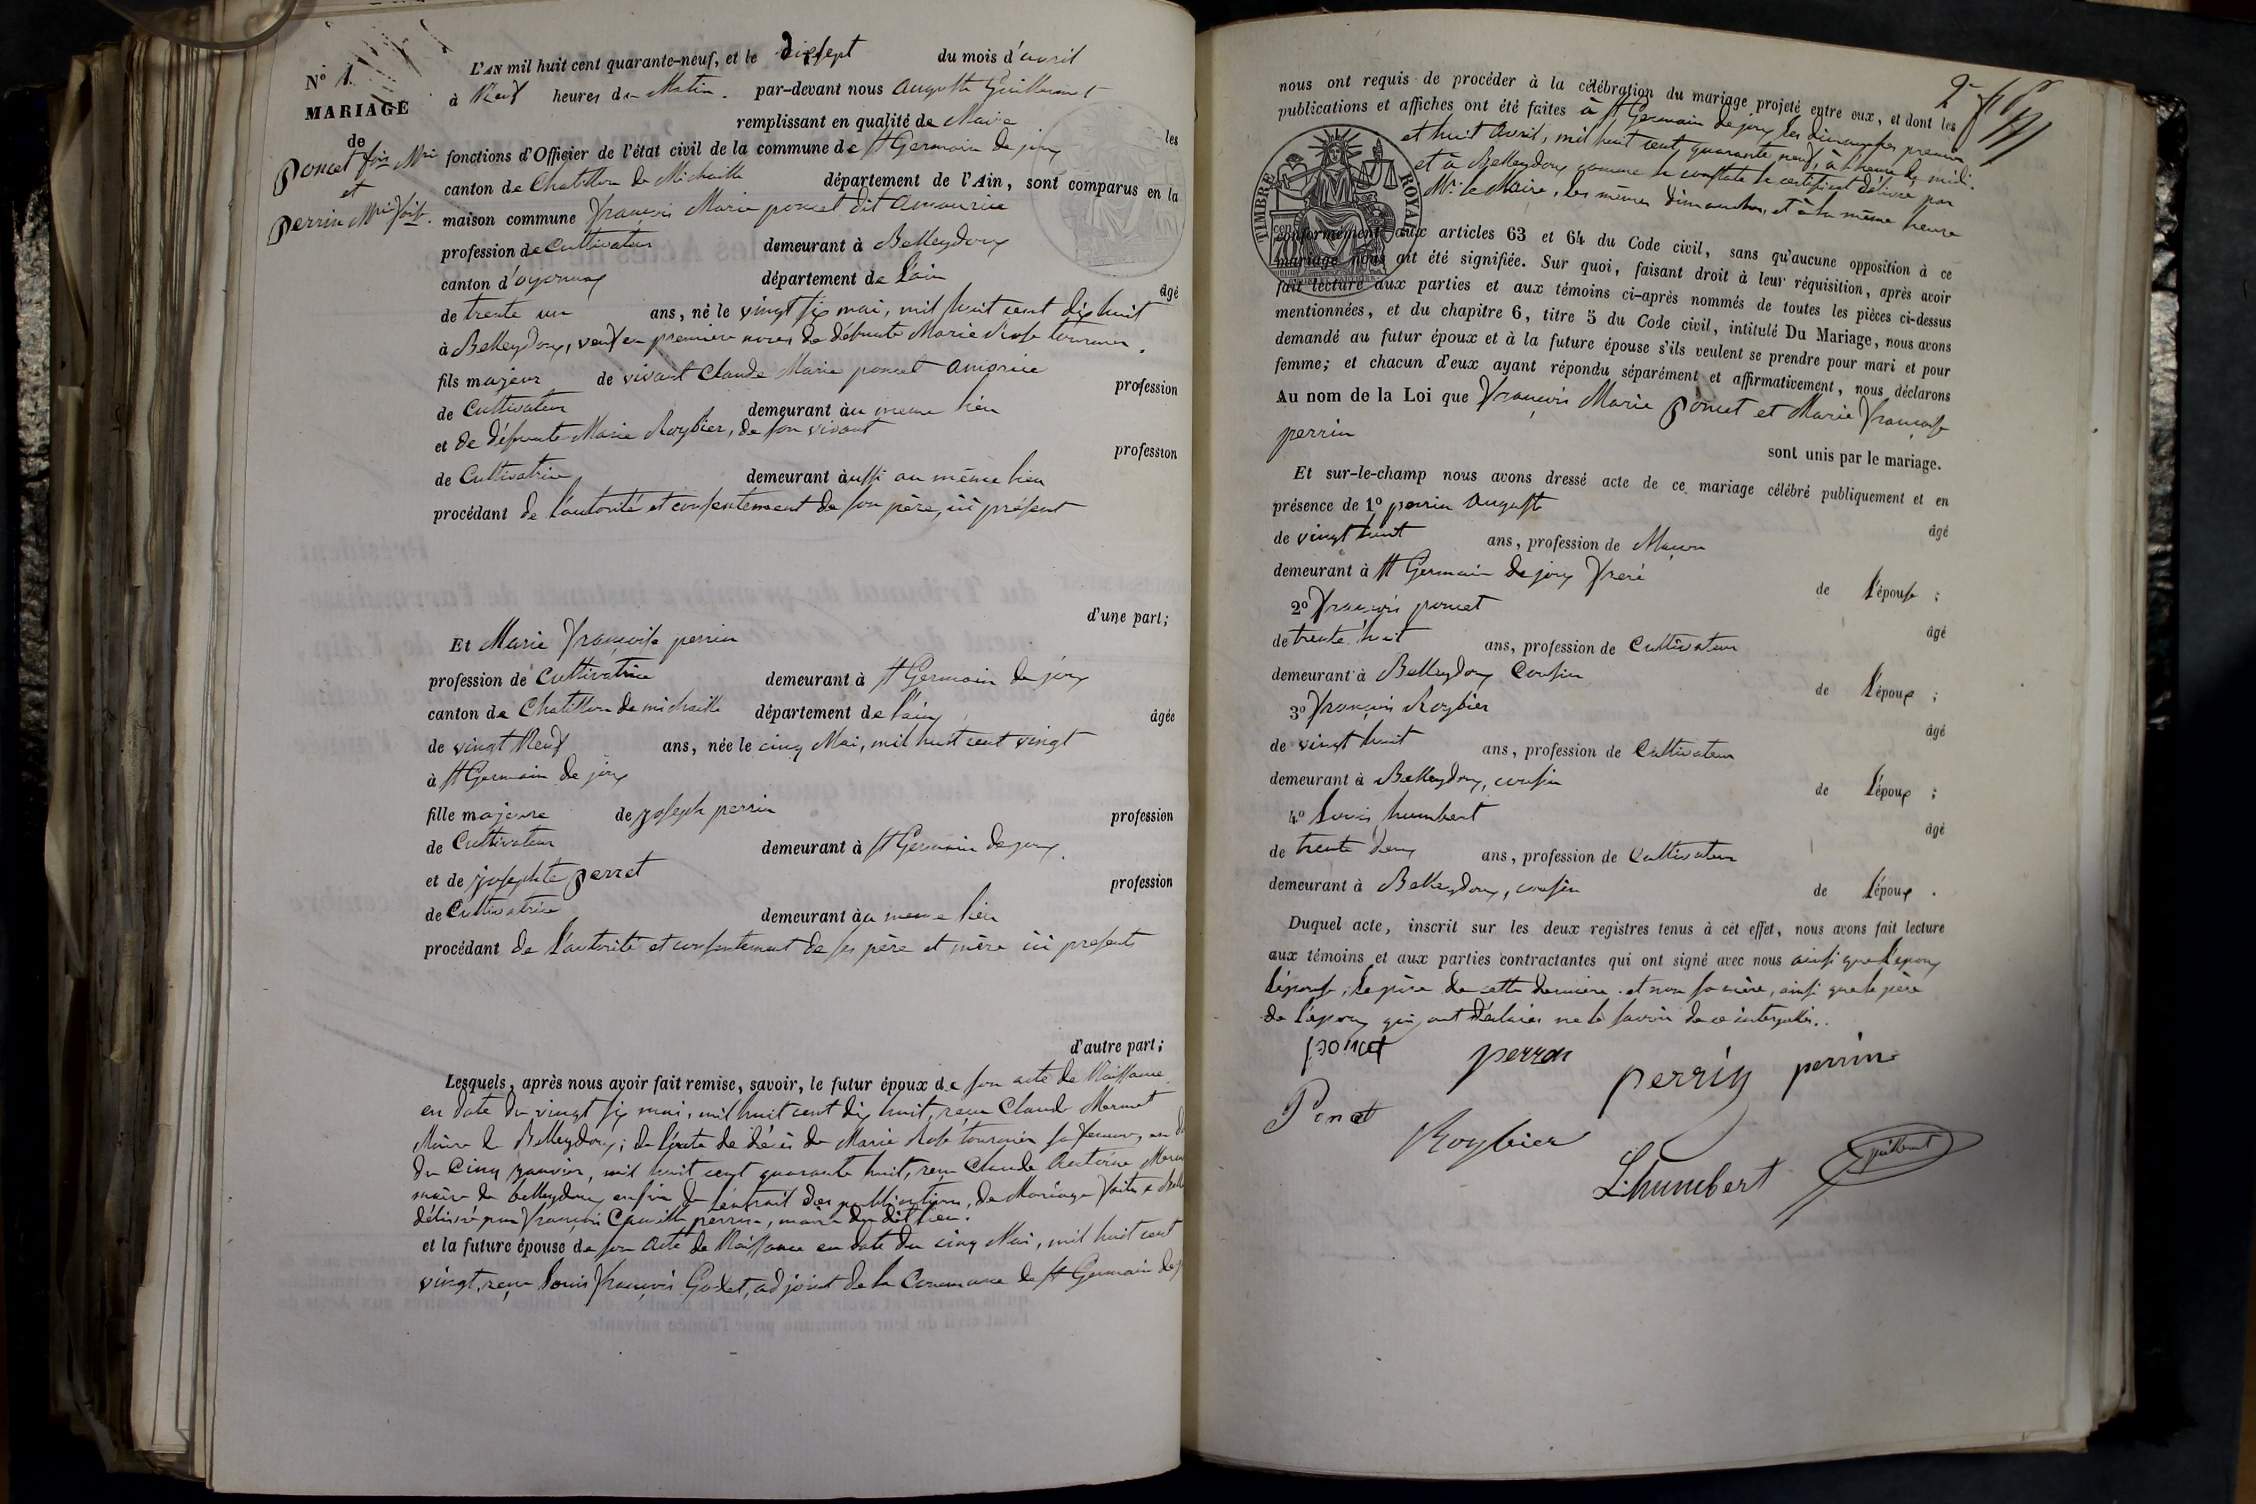 N° 1.
MARIAGE
de
poncet fois Mrie
et
perrin Mrie foise.
L'AN mil huit cent quarante-neuf, et le dixsept du mois d'avril
à Neuf heures du Matin. par-devant nous auguste Guillermet
remplissant en qualité de Maire les
fonctions d'Officier de l'état civil de la commune de St Germain de joux
canton de Chatillon de Michaille département de l'Ain, sont comparus en la
maison commune françois Marie poncet dit amouriée
profession de Cultivateur demeurant à Belleydoux
canton d'oyonnax département de l'ain âgé
de trente un ans, né le vingt six mai, mil huit cent dix huit
à Belleydoux, veuf en premiere noces de défunte Marie Rose tournier.
fils majeur de vivant Claude Marie poncet profession
de Cultivateur demeurant àu meme lieu
et de défunte Marie Roybier, de son vivant profession
de Cultivatrice demeurant àussi au même lieu
procédant de l'autorité et consentement de son père, ici présent
d'une part;
Et Marie françoise perrin
profession de Cultivatrice demeurant à St Germain de joux
canton de Chatillon de michaille département de l'ain âgée
de vingt Neuf ans, née le cinq Mai, mil huit cent vingt
à St Germain de joux
fille majeure de joseph perrin profession
de Cultivateur demeurant à St Germain de joux.
et de josephte perret profession
de Cultivatrice demeurant àu meme lieu
procédant de l'autorité et consentement de ses père et mère ici presents
d'autre part;
Lesquels, après nous avoir fait remise, savoir, le futur époux de son acte de Naissance
en date du vingt six mai, mil huit cent dix huit, reçu Claude Mermet
Maire de Belleydoux; de l'acte de décès de Marie Rose tournier sa femme, en d
du Cinq janvier, mil huit cent quarante huit, reçu Claude Antoine Merm
maire de belleydoux enfin de l'extrait des publications, de Mariage faites à Bell
délivré par françois Camille perrin, maire du dit lieu.
et la future épouse de son acte de Naissance en date du cinq Mai, mil huit cent
vingt, reçu Louis françois Godet, adjoint de la Commune de St Germain de j
2e f
nous ont requis de procéder à la célébration du mariage projeté entre eux, et dont les
publications et affiches ont été faites à St Germain de joux les dimanches premier
et huit avril, mil huit cent quarante neuf, à l'heure de midi.
et à Belleydoux comme le constate le certificat délivré par
Mr. le Maire, les mêmes dimanches, et à la même heure
TIMBRE ROYAL
conformément aux articles 63 et 64 du Code civil, sans qu'aucune opposition à ce
mariage nous ait été signifiée. Sur quoi, faisant droit à leur réquisition, après avoir
fait lecture aux parties et aux témoins ci-après nommés de toutes les pièces ci-dessus
mentionnées, et du chapitre 6, titre 5 du Code civil, intitulé Du Mariage, nous avons
demandé au futur époux et à la future épouse s'ils veulent se prendre pour mari et pour
femme; et chacun d'eux ayant répondu séparément et affirmativement, nous déclarons
Au nom de la Loi que françois Marie poncet et Marie françoise
perrin
sont unis par le mariage.
Et sur-le-champ nous avons dressé acte de ce mariage célébré publiquement et en
présence de 1° perrin auguste âgé
de vingt huit ans, profession de Maçon
demeurant à St Germain de joux frere de l'épouse;
2° françois poncet âgé
de trente huit ans, profession de Cultivateur
demeurant à Belleydoux Cousin de l'époux;
3° françois Roybier âgé
de vingt huit ans, profession de Cultivateur
demeurant à Belleydoux, cousin de l'époux;
4° Louis humbert âgé
de trente deux ans, profession de Cultivateur
demeurant à Belleydoux, cousin de l'époux.
Duquel acte, inscrit sur les deux registres tenus à cet effet, nous avons fait lecture
aux témoins et aux parties contractantes qui ont signé avec nous ainsi que l'époux
l'épouse, le père de cette derniere. et non sa mère, ainsi que le père
de l'époux qui ont déclarés ne le savoir de ce interpellés.
poncet perrin perrin perrin
Poncet Roybier L. humbert guillermet